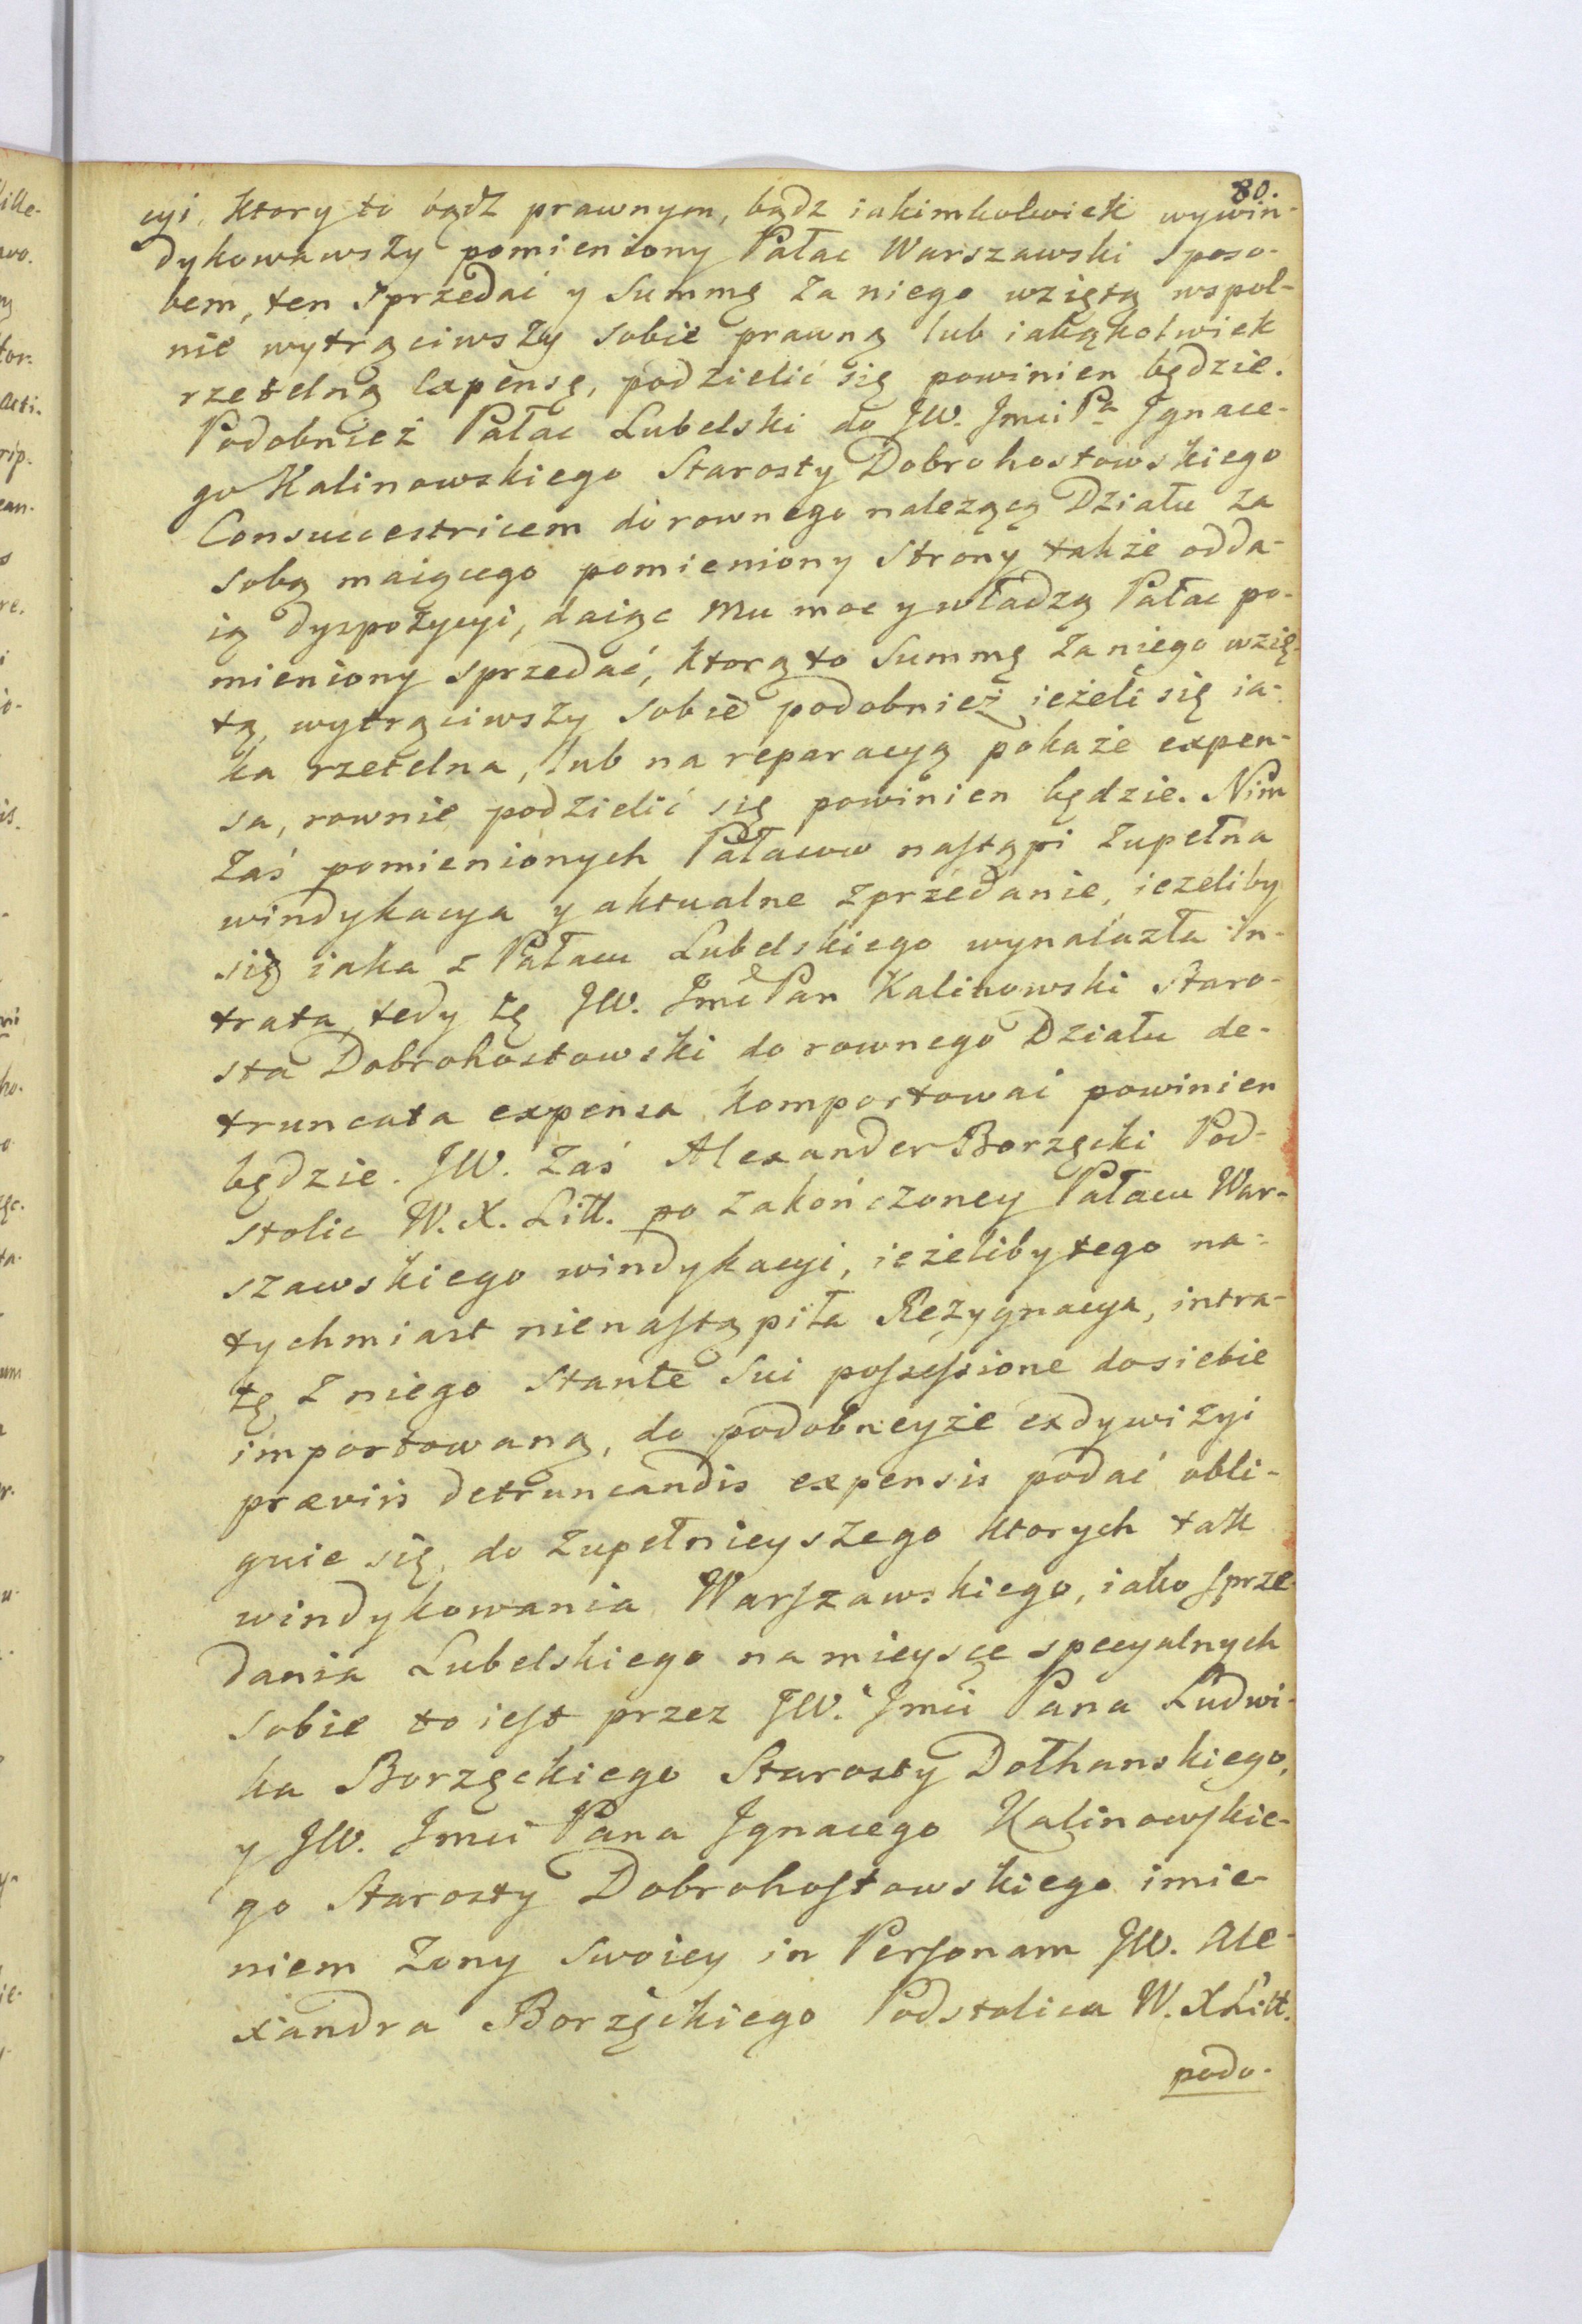 80.
cyi, ktory to bądź prawnym, bądz iakimkolwiek wywin-
dykowawszy pomieniony Pałac Warszawski sposo-
bem, ten sprzedać y Summę za niego wziętą wspol-
nie wytrąciwszy sobie prawną lub iakąkolwiek
rzetelną Expensę, podzielić się powinien będzie.
Podobnież Pałac Lubelski do JW. Jmci Pa Jgnace-
go Kalinowskiego Starosty Dobrohostowskiego
Consuccestricem do rownego należącą Działu za
sobą maiącego pomieniony Strony także odda-
ią dyspozycyi, daiąc mu moc y władzą Pałac po-
mieniony sprzedać, ktorą to Summę za niego wzię-
tą, wytrąciwszy sobie podobnież ieżeli się ia-
ka rzetelna, lub na reparacyą pokaże expen-
sa, rownie podzielić się powinien będzie. Nim
zaś pomienionych Pałacow nastąpi zupełna
windykacya y aktualne zprzedanie, ieżeliby
się iaka z Pałacu Lubelskiego wynalazła In-
trata, tedy tę JW. Jmć Pan Kalinowski Staro-
sta Dobrohostowski do rownego Działu de-
truncata expensa komportować powinien
będzie. JW. zaś Alexander Borzęcki Pod-
stolic W. X. Litt. po zakończoney Pałacu War-
szawskiego windykacyi, ieżeliby tego na-
tychmiast nienastąpiła Rezygnacya, intra-
tę z niego stante sui possessione dosiebie
importowaną, do podobneyże exdywizyi
præviis detruncandis expensis podać obli-
guie się, do zupełnieyszego ktorych tak
windykowania Warszawskiego, iako sprze-
dania Lubelskiego na mieysce specyalnych
sobie to iest przez JW. Jmci Pana Ludwi-
ka Borzęckiego Starosty Dołhanskiego,
y JW. Jmci Pana Jgnacego Kalinowskie-
go Starosty Dobrohostowskiego imie-
niem Zony swoiey in Personam JW. Ale-
xandra Borzęckiego Podstolica W. X Litt.
podo-